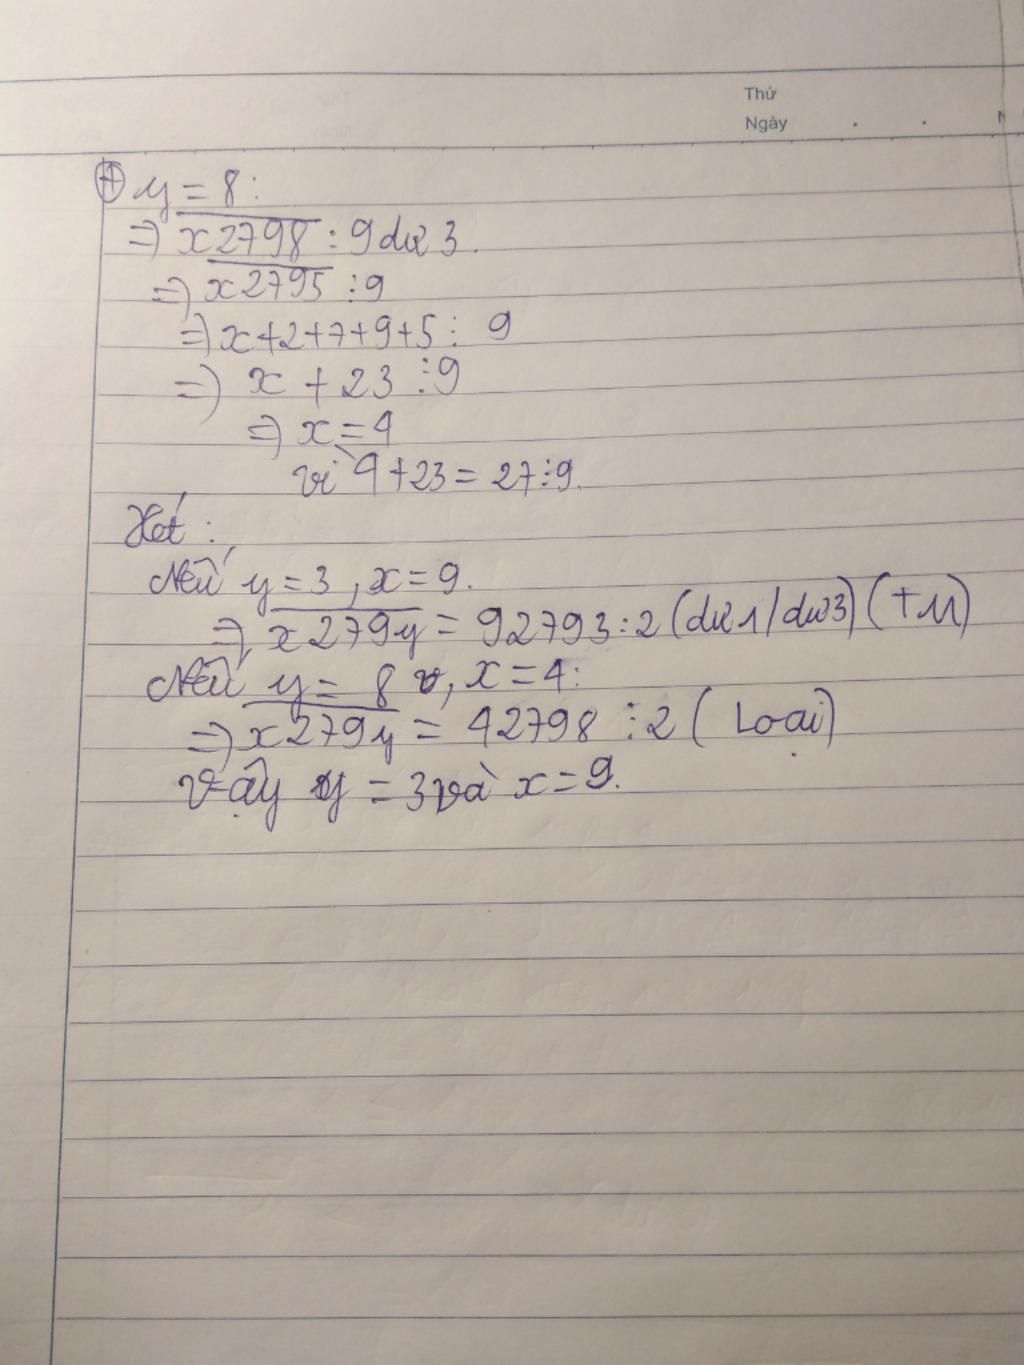 Thứ
Ngày . .
⊕ y = 8 :
=> x2798 : 9 dư 3.
=> x2795 ⋮ 9
=> x+2+7+9+5 ⋮ 9
=> x + 23 ⋮ 9
=> x = 4
vì 4+23 = 27 ⋮ 9.
Xét :
Nếu y = 3 , x = 9.
=> x279y = 92793 : 2 (dư 1/dư 3) (TM)
Nếu y = 8 , x = 4 :
=> x279y = 42798 ⋮ 2 ( Loại )
Vậy y = 3 và x = 9.